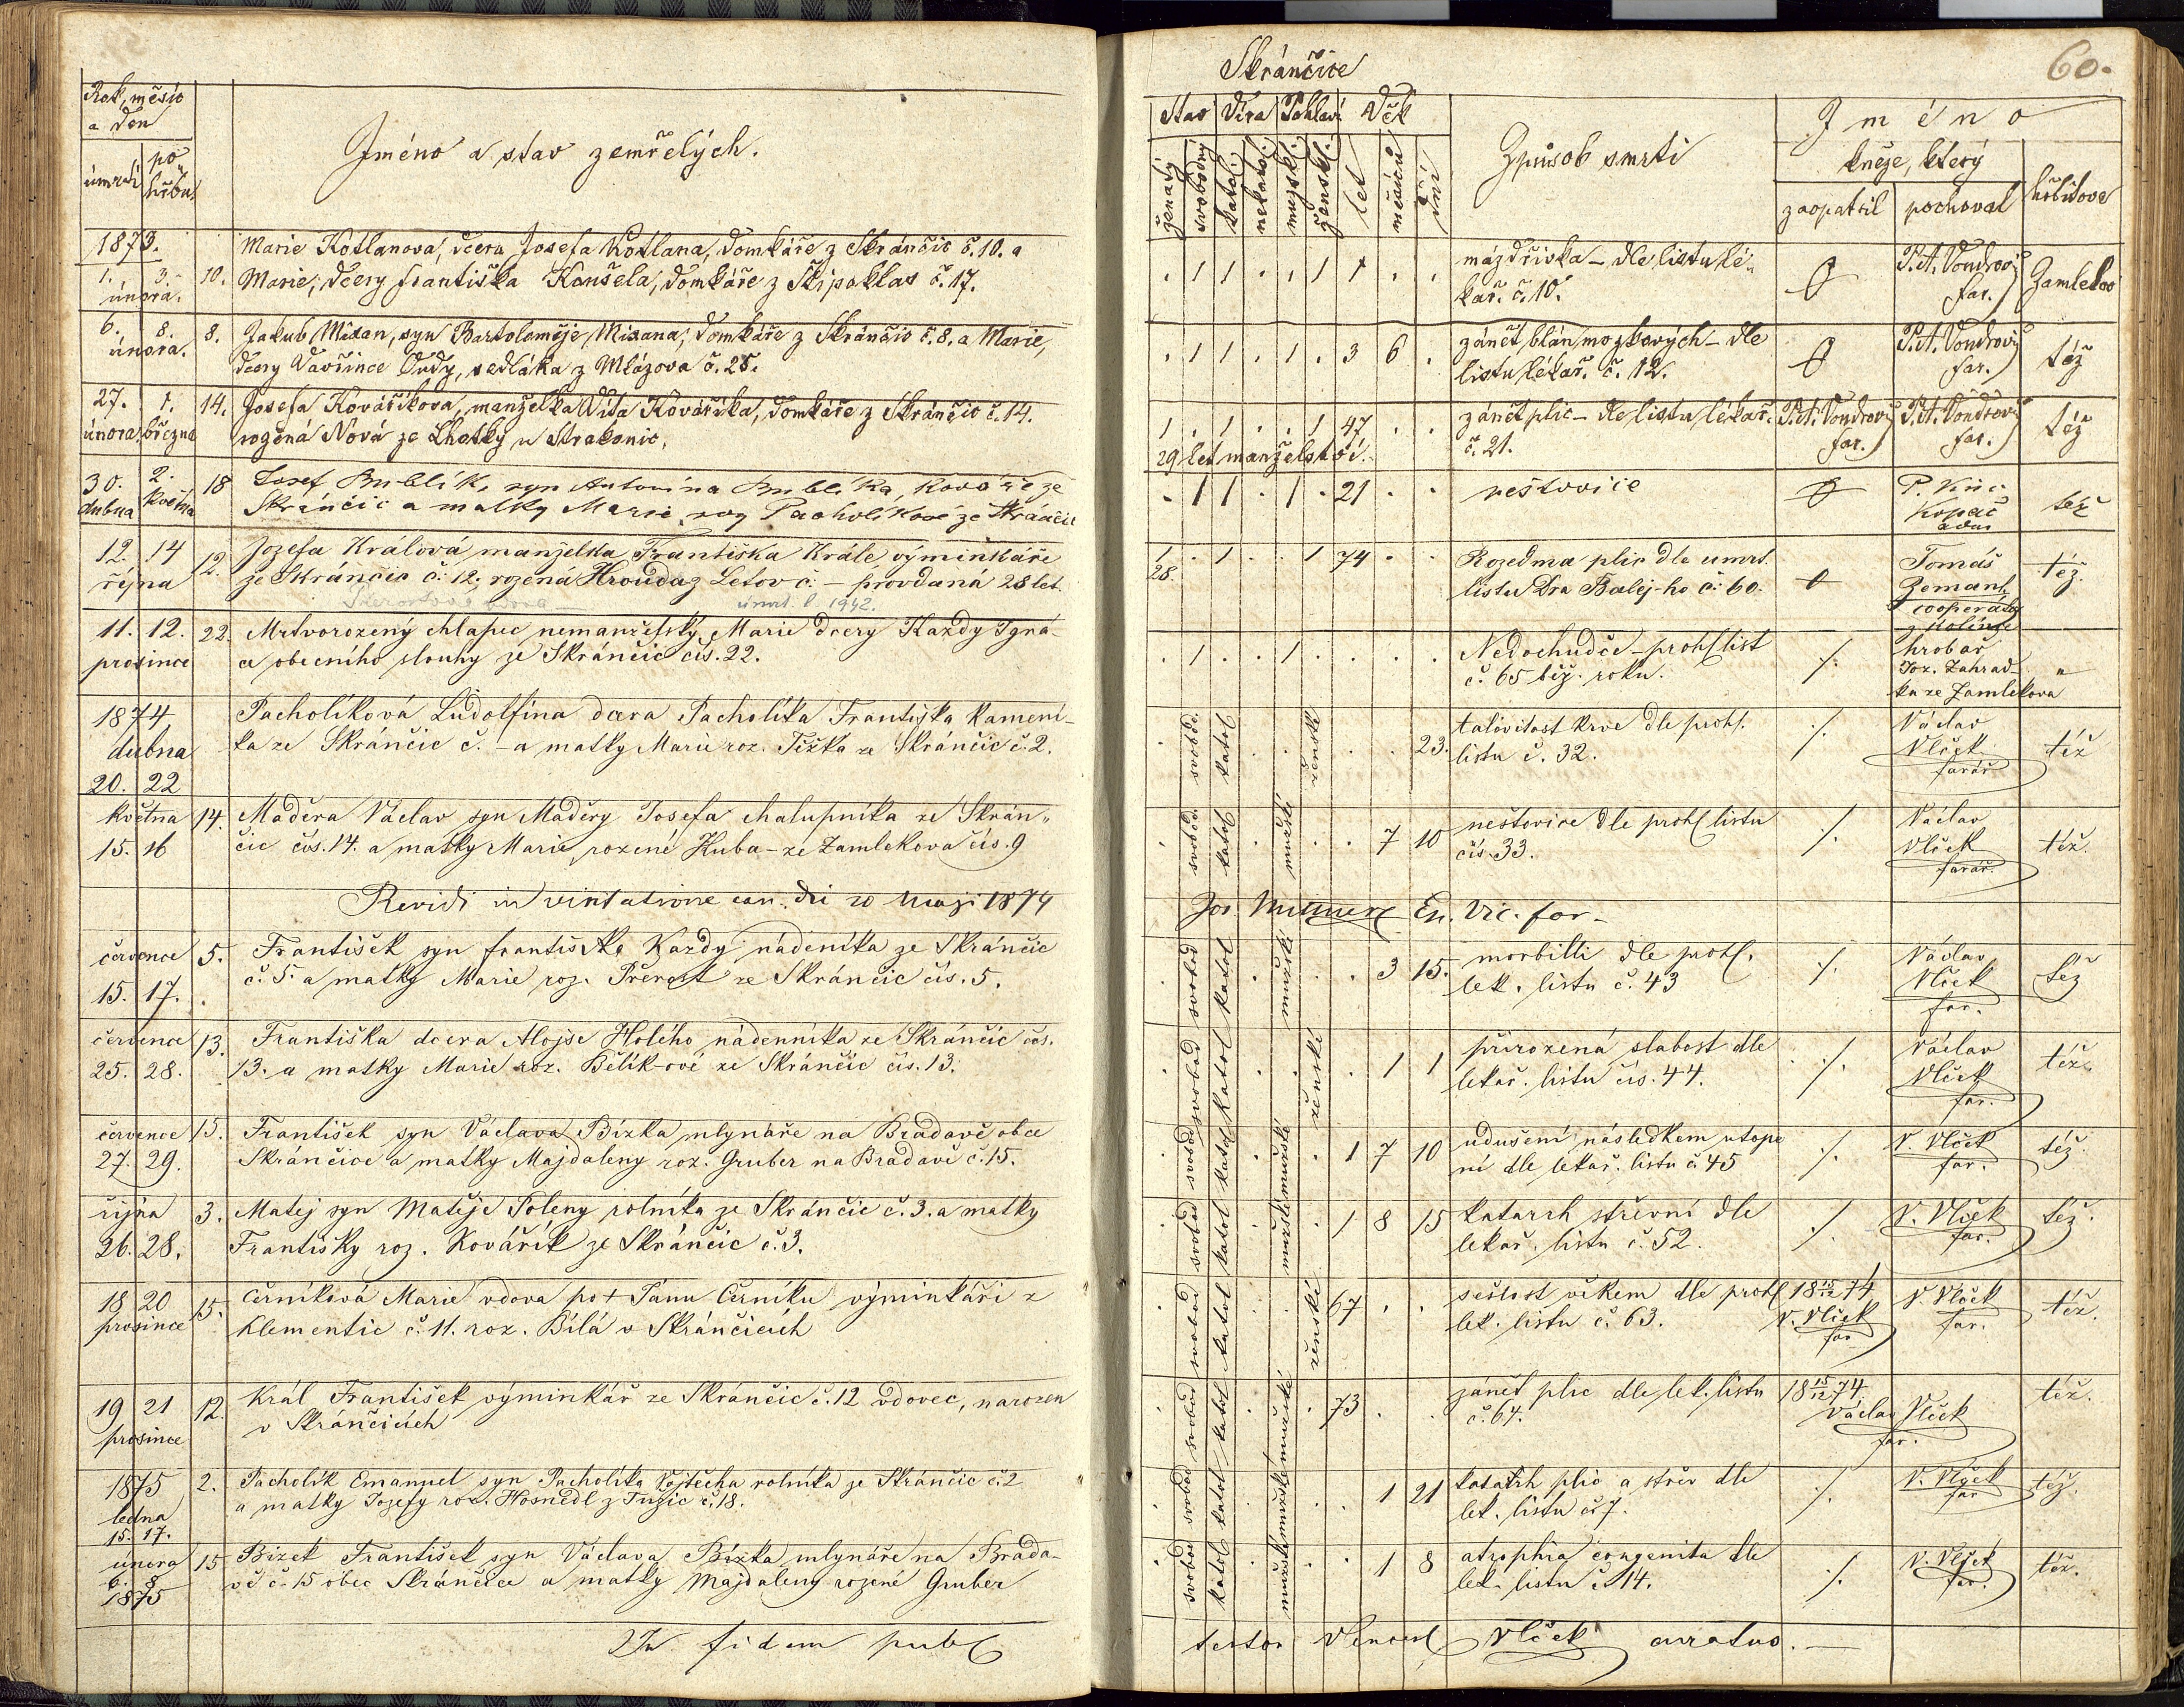 Rok, měsíc
a den
úmrtí
po
hřbu
Jméno a stav zemřelých.
1873.
Marie Kotlanova, dcera Josefa Kotlana, domkáře z Skránčic č. 10. a
1. 3. 10. Marie, dcery Františka Konšela, domkáře z Skipoklas č. 17.
února.
6. 8. 8. Jakub Mixan, syn Bartoloměje Mixana, domkáře z Skránčic č. 8. a Marie,
února.
dcery Vavřince Dudy, sedláka z Mlázova č. 25.
27. 1. 14. Josefa Kovaříkova, manželka Víta Kovaříka, domkáře z Skránčic č. 14.
února. března rozená Nová ze Lhotky u Strakonic.
30. 2. 18 Josef Bublík, syn Antonína Bublíka, kováře ze
dubna května Skránčic a matky Marie roz Pacholíkové ze Skránčic
12. 14 12. Jozefa Králová manželka Františka Krále výminkáře
října ze Skránčic č. 12, rozená Hrouda z Letov č. – provdaná 28 let.
úmrt. l 1942.
11. 12. 22. Mrtvorozený chlapec nemanželský Marie dcery Kazdy Igná-
prosince ce obecního slouhy ze Skránčic čís. 22.
1874
Pacholíková Ludolfina dcera Pacholíka Františka kamení-
dubna ka ze Skránčic č. – a matky Marie roz. Tížka ze Skránčic č. 2.
20. 22
května 14. Maděra Václav syn Maděry Josefa chalupníka ze Skrán„
15. 16 čic čís. 14. a matky Marie, rozené Kuba – ze Zamlekova čís. 9
Revidi in visitatione can. die 20 Maji 1874
července 5. František syn Františka Kazdy nádeníka ze Skránčic
15. 17. č. 5. a matky Marie roz. Přerost ze Skránčic čís. 5.
července 13. Františka dcera Alojse Holého nádenníka ze Skránčic čís.
25. 28. 13. a matky Marie roz. Bělík-ové ze Skránčic čís. 13.
července 15. František syn Václava Bízka mlynáře na Bradavě obce
27. 29. Skránčice a matky Majdaleny roz. Gruber na Bradavě č. 15.
října 3. Matej syn Matěje Poleny rolníka ze Skránčic č. 3. a matky
26. 28. Františky roz. Kovářík ze Skránčic č. 3.
18 20 15. Černíková Marie vdova po + Janu Černíku výminkáři z
prosince Klementic č. 11. roz. Bílá v Skránčicích
19 21 12. Král František výminkář ze Skránčic č. 12 vdovec, narozen
prosince v Skránčicích
1875 2. Pacholík Emanuel syn Pacholíka Vojtěcha rolníka ze Skránčic č. 2
ledna a matky Jozefy roz. Hosnedl z Tužic č. 18.
15. 17.
února 15 Bízek František syn Václava Bízka mlynáře na Brada-
6. 8 vě č. 15 obec Skránčice a matky Majdaleny rozené Gruber
1875
In fidem publ
Skránčice
60.
Stav Víra Pohlaví Věk
Způsob smrti
Jméno
kněze, který
hřbitova
ženatý svobodný katol. nekatol. mužské. ženské. let měsíců dní
zaopatřil pochoval
. 1 1 . . 1 1 . . mázdřivka – dle listu lé-
kař. č. 10.
P. A. Vondrovic
far.
Zamlekov
. 1 1 . 1 . 3 6 . zánět blán mozkových – dle
listu lékař. č. 12.
P. A. Vondrovic
far.
též
1 . 1 . . 1 47 . . zánět plic – dle listu lékař.
29 let manželství.
č. 21.
P. A. Vondrovic
far.
P. A. Vondrovic
far.
též
. 1 1 . 1 . 21 . . neštovice
Kopač
též
1 . 1 . . 1 74 . . Rozedma plic dle umrt.
28.
listu Dra Balej-ho č. 60.
Tomáš
Zemant
cooperator
z Kolínce
též.
. 1 . . 1 . . . . Nedochudče – prohl list
č. 65 běž. roku.
hrobař
Joz. Zahrad-
ka ze Zamlekova
„
svobod. katol ženské 23. talovitost krve dle prohl.
listu č. 32.
Václav
Vlček
farář
též
svobod. katol mužské 7 10 neštovice dle prohl listu
čís. 33.
Václav
Vlček
farář.
též.
Ep. Vic. for.
svobod katol mužské 3 15. morbilli dle prohl.
lek. listu č. 43
Václav
Vlček
far.
též
svobod katol ženské 1 1 přirozená slabost dle
lekař. listu čís. 44.
Václav
Vlček
far.
též
svobod katol mužské 1 7 10 udušení následkem utope
ní dle lekař. listu č. 45
V. Vlček
far.
též.
svobod katol mužské 1 8 15 katarrh střevní dle
lekař. listu č. 52.
V. Vlček
far.
též.
svobod katol ženské 67 . . sešlost věkem dle prohl
lek. listu č. 63.
18 15/12 74
V. Vlček
far
V. Vlček
far.
též.
svobod katol mužské 73 . . zánět plic dle lek. listu
č. 64.
18 15/12 74.
Václav Vlček
far.
též.
svobod katol mužské 1 21 katarrh plic a střev dle
lek. listu č. 7.
V. Vlček
far
též.
svobod katol mužské 1 8 atrophia congenita dle
lek. listu č. 14.
V. Vlček
far.
též.
testor Vlček curatus. –